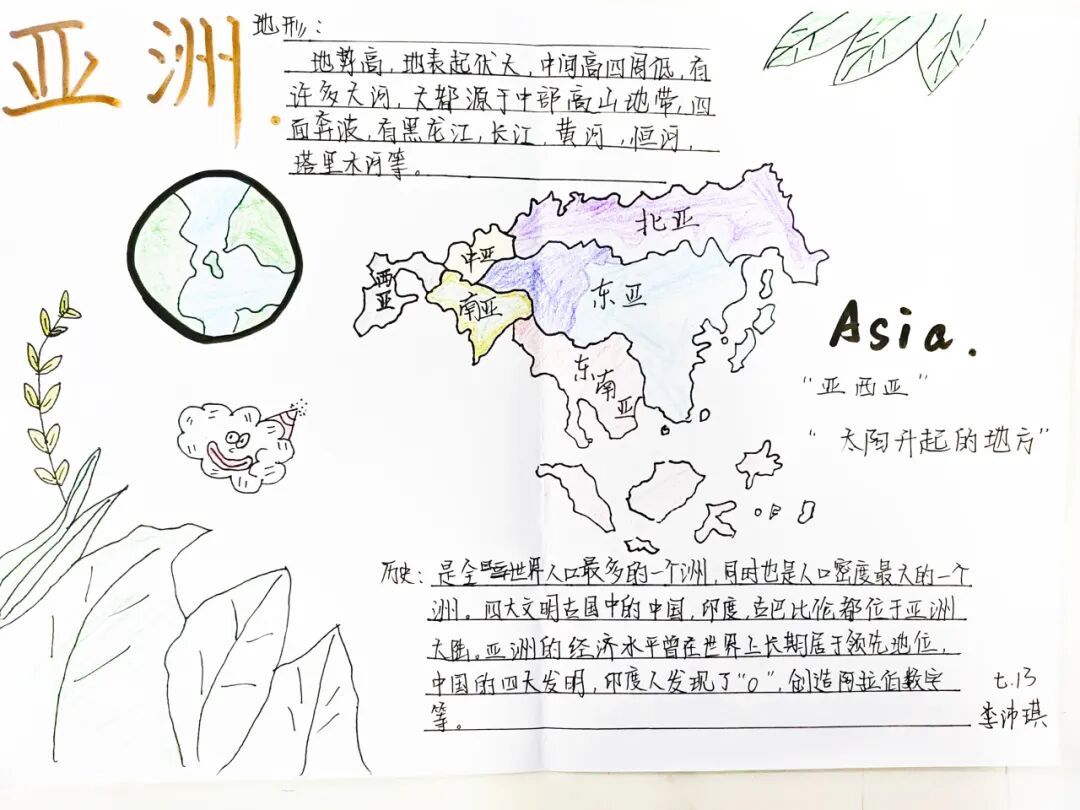 亚洲.
地形：
地势高，地表起伏大，中间高四周低，有
许多大河，大都源于中部高山地带，四
面奔波，有黑龙江，长江，黄河，恒河，
塔里木河等。
北亚
中亚
西亚
南亚
东亚
东南亚
Asia.
"亚西亚"
"太阳升起的地方"
历史：是全世界人口最多的一个洲，同时也是人口密度最大的一个
洲。四大文明古国中的中国，印度，古巴比伦都位于亚洲
大陆。亚洲的经济水平曾在世界上长期居于领先地位，
中国的四大发明，印度人发现了"0"，创造阿拉伯数字
等。
七.13
李沛琪